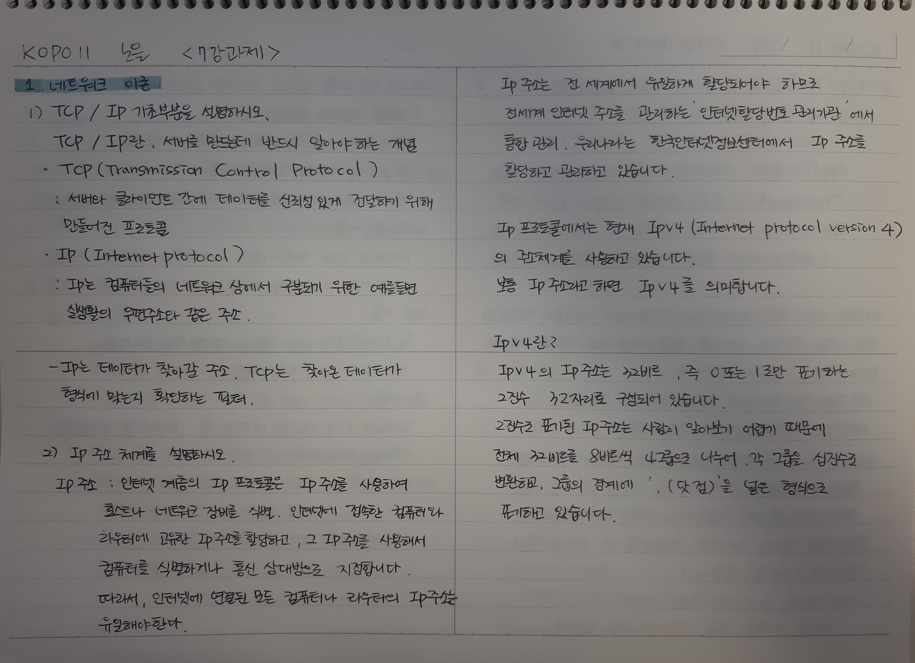 KOPO11 노을 <7강과제>
1. 네트워크 이론
1) TCP / Ip 기초부분을 설명하시오.
TCP / IP란, 서버를 만드는데 반드시 알아야하는 개념
· TCP (Transmission Control Protocol)
: 서버와 클라이언트 간에 데이터를 신뢰성 있게 전달하기 위해
만들어진 프로토콜
· IP (Internet protocol)
: Ip는 컴퓨터들의 네트워크 상에서 구분되기 위한 예를들면
실생활의 우편주소와 같은 주소.
- Ip는 데이터가 찾아갈 주소, Tcp는 찾아온 데이터가
형식에 맞는지 확인하는 필터.
2) Ip 주소 체계를 설명하시오.
Ip 주소 : 인터넷 계층의 Ip 프로토콜은 Ip 주소를 사용하여
호스트나 네트워크 장비를 식별. 인터넷에 접속한 컴퓨터와
라우터에 고유한 Ip주소를 할당하고, 그 Ip 주소를 사용해서
컴퓨터를 식별하거나 통신 상대방으로 지정합니다.
따라서, 인터넷에 연결된 모든 컴퓨터나 라우터의 Ip주소는
유일해야한다.
Ip 주소는 전 세계에서 유일하게 할당되어야 하므로
전세계 인터넷 주소를 관리하는 '인터넷할당번호 관리기관'에서
통합 관리, 우리나라는 한국인터넷정보센터에서 Ip 주소를
할당하고 관리하고 있습니다.
Ip 프로토콜에서는 현재 Ipv4 (Internet protocol version 4)
의 주소체계를 사용하고 있습니다.
보통 Ip 주소라고 하면 Ipv4를 의미합니다.
Ipv4란?
Ipv4의 Ip주소는 32비트, 즉 0또는 1로만 표기하는
2진수 32자리로 구성되어 있습니다.
2진수로 표기된 Ip주소는 사람이 알아보기 어렵기 때문에
전체 32비트를 8비트씩 4그룹으로 나누어, 각 그룹을 십진수로
변환하고, 그룹의 경계에 '. (닷 점)'을 넣은 형식으로
표기하고 있습니다.